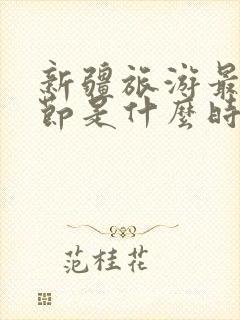 新疆旅游最
节是什麼時
范桂花